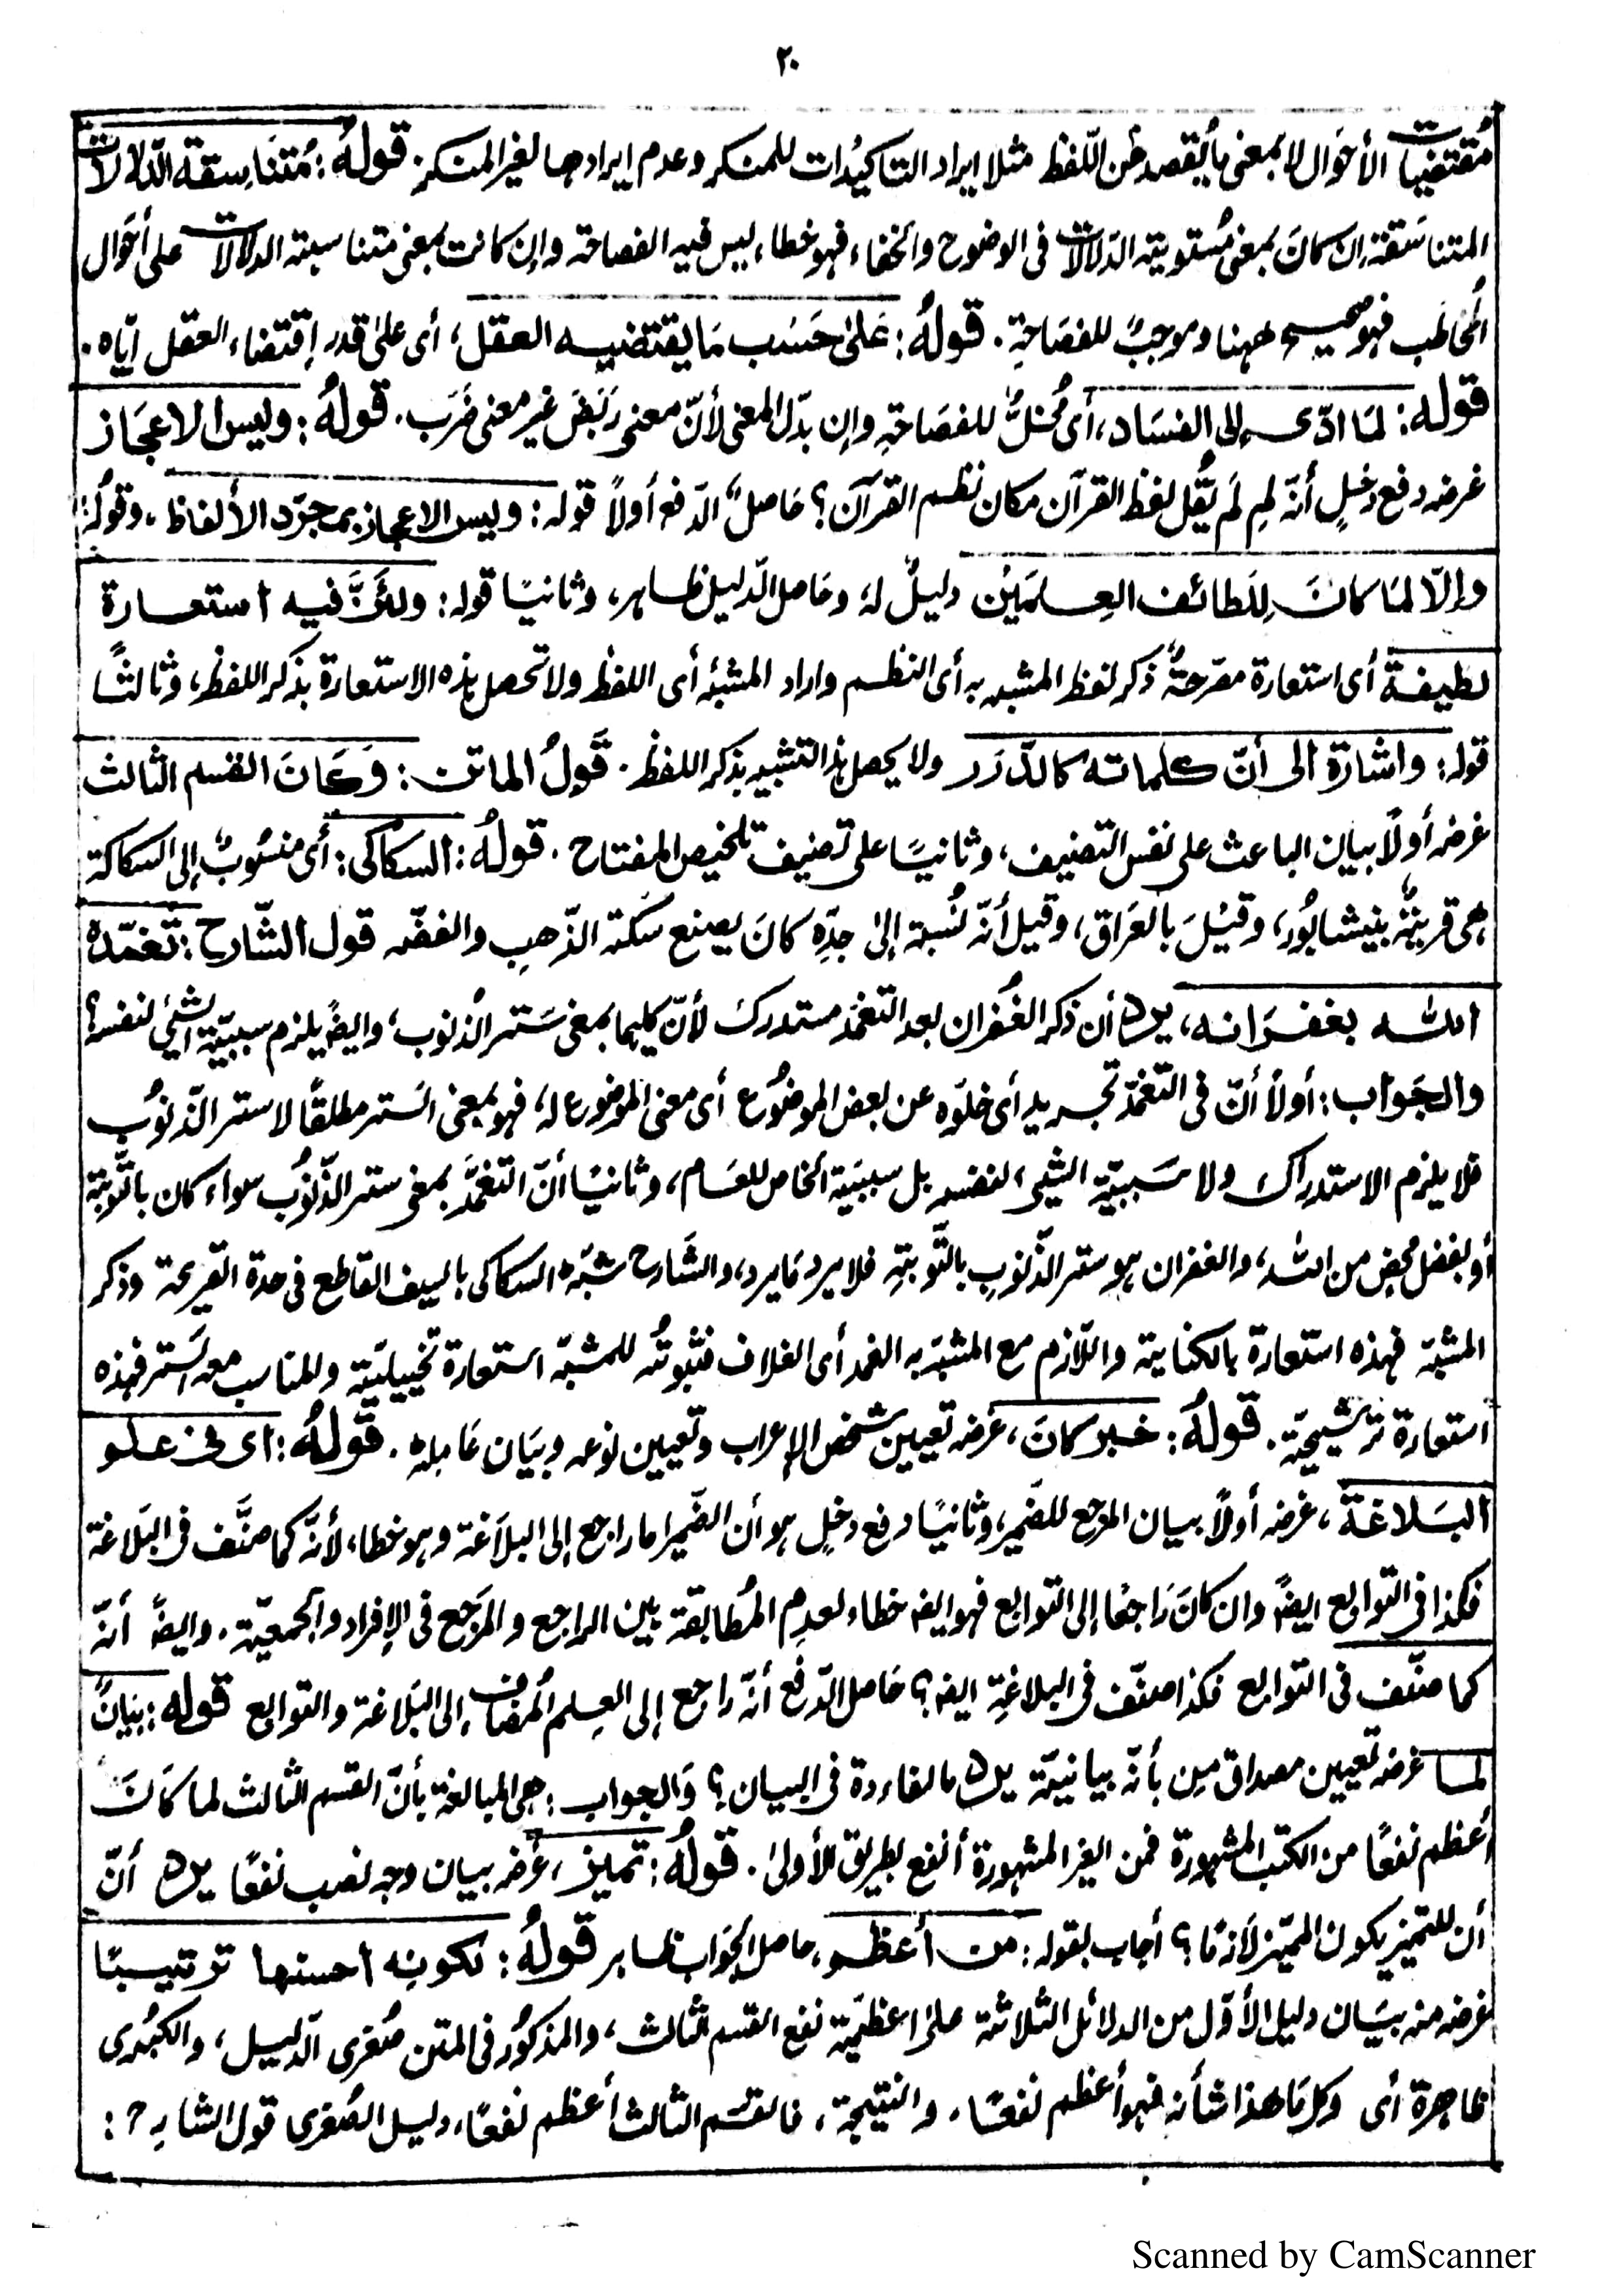 ٢٠
مُقتضيات الأحَوال لا بمعنى ما يُقصد من اللّفظ مثلا ايراد التاكيدات للمنكر وعدم ايرادها لغير المنكر. قولهُ: مُتنَاسقة الدّلالات
المتناسَقة إن كانَ بمعنى مُستوية الدّلالات فى الوضوح والخفاء فهو خطاء ليس فيه الفصاحة وإن كانت بمعنى متناسبة الدلالات على أحَوال
المخاطب فهو صحيح ههنا وموجبٌ للفصَاحةِ. قولهُ: عَلىٰ حَسَب مَا يقتضيه العقل، أى علىٰ قدر إقتضاء العقل ايّاه.
قوله: لمَا ادّى إلى الفسَاد، أى مُخلٌّ للفصَاحةِ وإن بدّل المعنى لأنّ معنى رَبَضَ غير معنى ضَرَب. قولهُ: وليس الاعجَاز
غرضه دفع دخلٍ أنّه لِم لَم يَقُل لفظ القرآن مكان نظم القرآن؟ حَاصلُ الدّفع أولاً قوله: وليس الاعجاز بمجرّد الألفاظ، وقولُه:
وإلّا لمَا كانَ لِلَطائف العِلمَيْن دليلٌ له، وحَاصل الدّليل ظاهر، وثانيًا قوله: ولأنَّ فيه استعارة
لطيفة أى استعارة مصرّحةٌ ذكر لفظ المشبه به أى النظم واراد المشبّه أى اللفظ ولا تحصل هذه الاستعارة بذكر اللفظ، وثالثًا
قوله: واشارة الى أنّ كلماته كالدّرَر ولا يحصل هذا التشبيه بذكر اللفظ. قَولُ الماتن: وَكَانَ القسم الثالث
غرضه أولًا بيان الباعث على نفس التصنيف، وثانيًا على تصنيف تلخيص المفتاح. قولهُ: السكاكى: أى منسُوبٌ إلى السكاكة
هى قريةٌ بنيشابُور، وقيْلَ بالعَراق، وقيل أنّه نُسبة إلىٰ جدّهِ كانَ يصنع سَكّة الذّهبِ والفضّه قول الشّارح: تغمّده
الله بغفرَانه، يرد أن ذكر الغُفران بعد التغمّد مستدرك لأنّ كليهما بمعنى سَتر الذُنوب، وايضًا يلزم سببيّة الشئى لنفسه؟
والجَواب: أولاً أنّ فى التغمّد تجريد أى خلوّه عن بعض الموضُوع أى معنى الموضوع له، فهو بمعنى السَتر مطلقًا لا ستر الذّنوبُ
فلا يلزم الاستدراك ولا سَببيّة الشيى لنفسه بل سببيّة الخاص للعَام، وثانيًا أنّ التغمّدَ بمعنى ستر الذّنوُب سواء كان بالتّوبة
أو بفضل محض من الله، والغفران هو ستر الذّنوبِ بالتّوبةِ فلا يرد مَا يرد، والشَارح شبّه السكاكى بالسيف القاطع فى حدة القريحة وذكر
المشبّه فهذه استعارة بالكناية واللّازم مع المشبّه به الغمد أى الغلاف فثبوتُه للمشبّه استعارة تخييليّة والمناسب معه السَتر فهذه
استعارة ترشيحيّة. قولهُ: خبر كانَ، غرضه تعيين شخص الإعراب وتعيين نوعه وبيَان عَامِلهِ. قولهُ: اى فى علم
البَلاغة، غرضه أولاً بيان المرجع للضَمير، وثانيًا دفع دخلٍ هو أن الضَمير اما راجع إلى البلاغة وهو خطاء، لأنّه كما صنَّف فى البَلاغة
فكذا فى التوابع ايضًا وان كانَ رَاجعًا إلى التوابع فهو ايضا خطاء لعدم المُطابقة بين الراجع والمَرَجع فى الإفراد والجمعيّة. وايضًا أنّه
كما صنّف فى التوابع فكذا صنّف فى البلاغةِ ايضا؟ حَاصل الدّفع أنّه راجع إلى العِلم المُضاف إلى البَلاغة والتوابع قوله: بيَانٌ
لما غرضه تعيين مصداق مِن بأنّه بيانيّة يرد ما الفاءدة فى البيان؟ وَالجواب: هى المبالغة بأنّ القسم الثالث لما كَانَ
أعظم نفعًا من الكتب المشهورة فمن الغير المشهورة أنفع بطريق الأولىٰ. قولهُ: تميز، غرضه بيان وجه نصب نفعًا يرد أنّ
أن للتميز يكون المميّز لازمًا؟ أجاب بقوله: من أعظم، حاصل الجَواب ظاهر قولهُ: لكونه احسنها ترتيبًا
غرضه منه بيَان دليل الأوّل من الدلائل الثلاثة علىٰ اعظميّة نفع القسم الثالث، والمذكوُر فى المتن صُغرى الدّليل، والكبُرى
ظاهرة أى وكل مَا هٰذا شأنه فهو أعظم نفعًا، والنتيجة، فالقسَم الثالث أعظم نفعًا، دليل الصُغرى قول الشارح:
Scanned by CamScanner